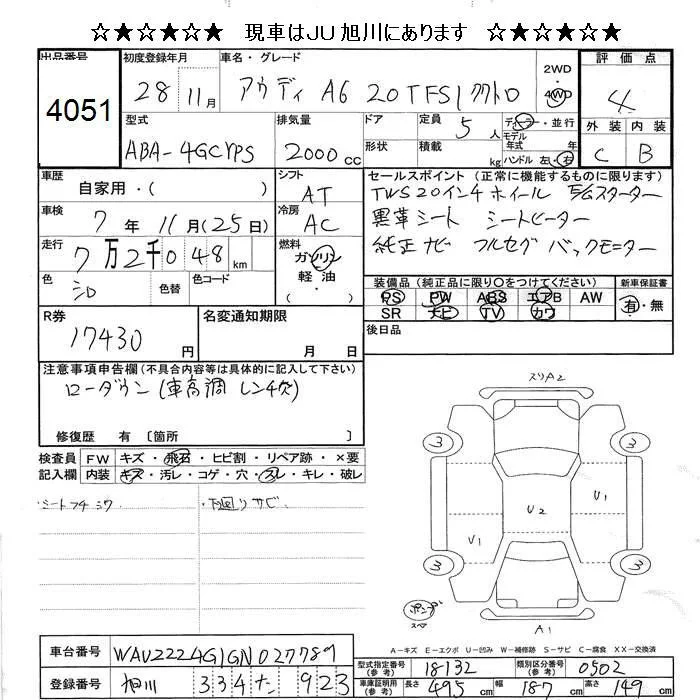 ☆★☆★☆★☆ 現車はJU旭川にあります ☆★☆★☆★☆
出品番号
4051
初度登録年月
28 11月
車名・グレード
アウディ A6 20TFSIクワトロ
2WD
4WD
評価点
4
型式
ABA-4GCYPS
排気量
2000cc
ドア
形状
定員
5人
積載
kg
ディーラー・並行
モデル
年式 年
ハンドル 左・右
外装 内装
C B
車歴
自家用・( )
シフト
AT
車検
7年 11月(25日)
冷房
AC
走行
7万2千048km
燃料
ガソリン
軽油
( )
色
シロ
色替
色コード
セールスポイント (正常に機能するものに限ります)
TWS20インチホイール E/Gスターター
黒革シート シートヒーター
純正ナビ フルセグ バックモニター
装備品 (純正品に限り○をつけてください) 新車保証書
PS PW ABS エアB AW
SR ナビ TV カワ
有・無
後日品
R券
17430円
名変通知期限
月 日
注意事項申告欄(不具合内容等は具体的に記入して下さい)
ローダウン (車高調 レンチ欠)
修復歴 有 〔箇所 〕
検査員
記入欄
FW キズ・飛石・ヒビ割・リペア跡・×要
内装 キズ・汚レ・コゲ・穴・スレ・キレ・破レ
・シートフチシワ
・下廻リサビ
スリA2
3
3
3
3
U1
U2
U1
スペア
A1
A-キズ E-エクボ U-凹み W-補修跡 S-サビ C-腐食 XX-交換済
車台番号
WAUZZZ4G1GN027789
登録番号
旭川 334 た 923
型式指定番号
(参考)
18132
類別区分番号
(参考)
0502
車庫証明用
(参考)
長さ 495cm 幅 187cm 高さ 149cm